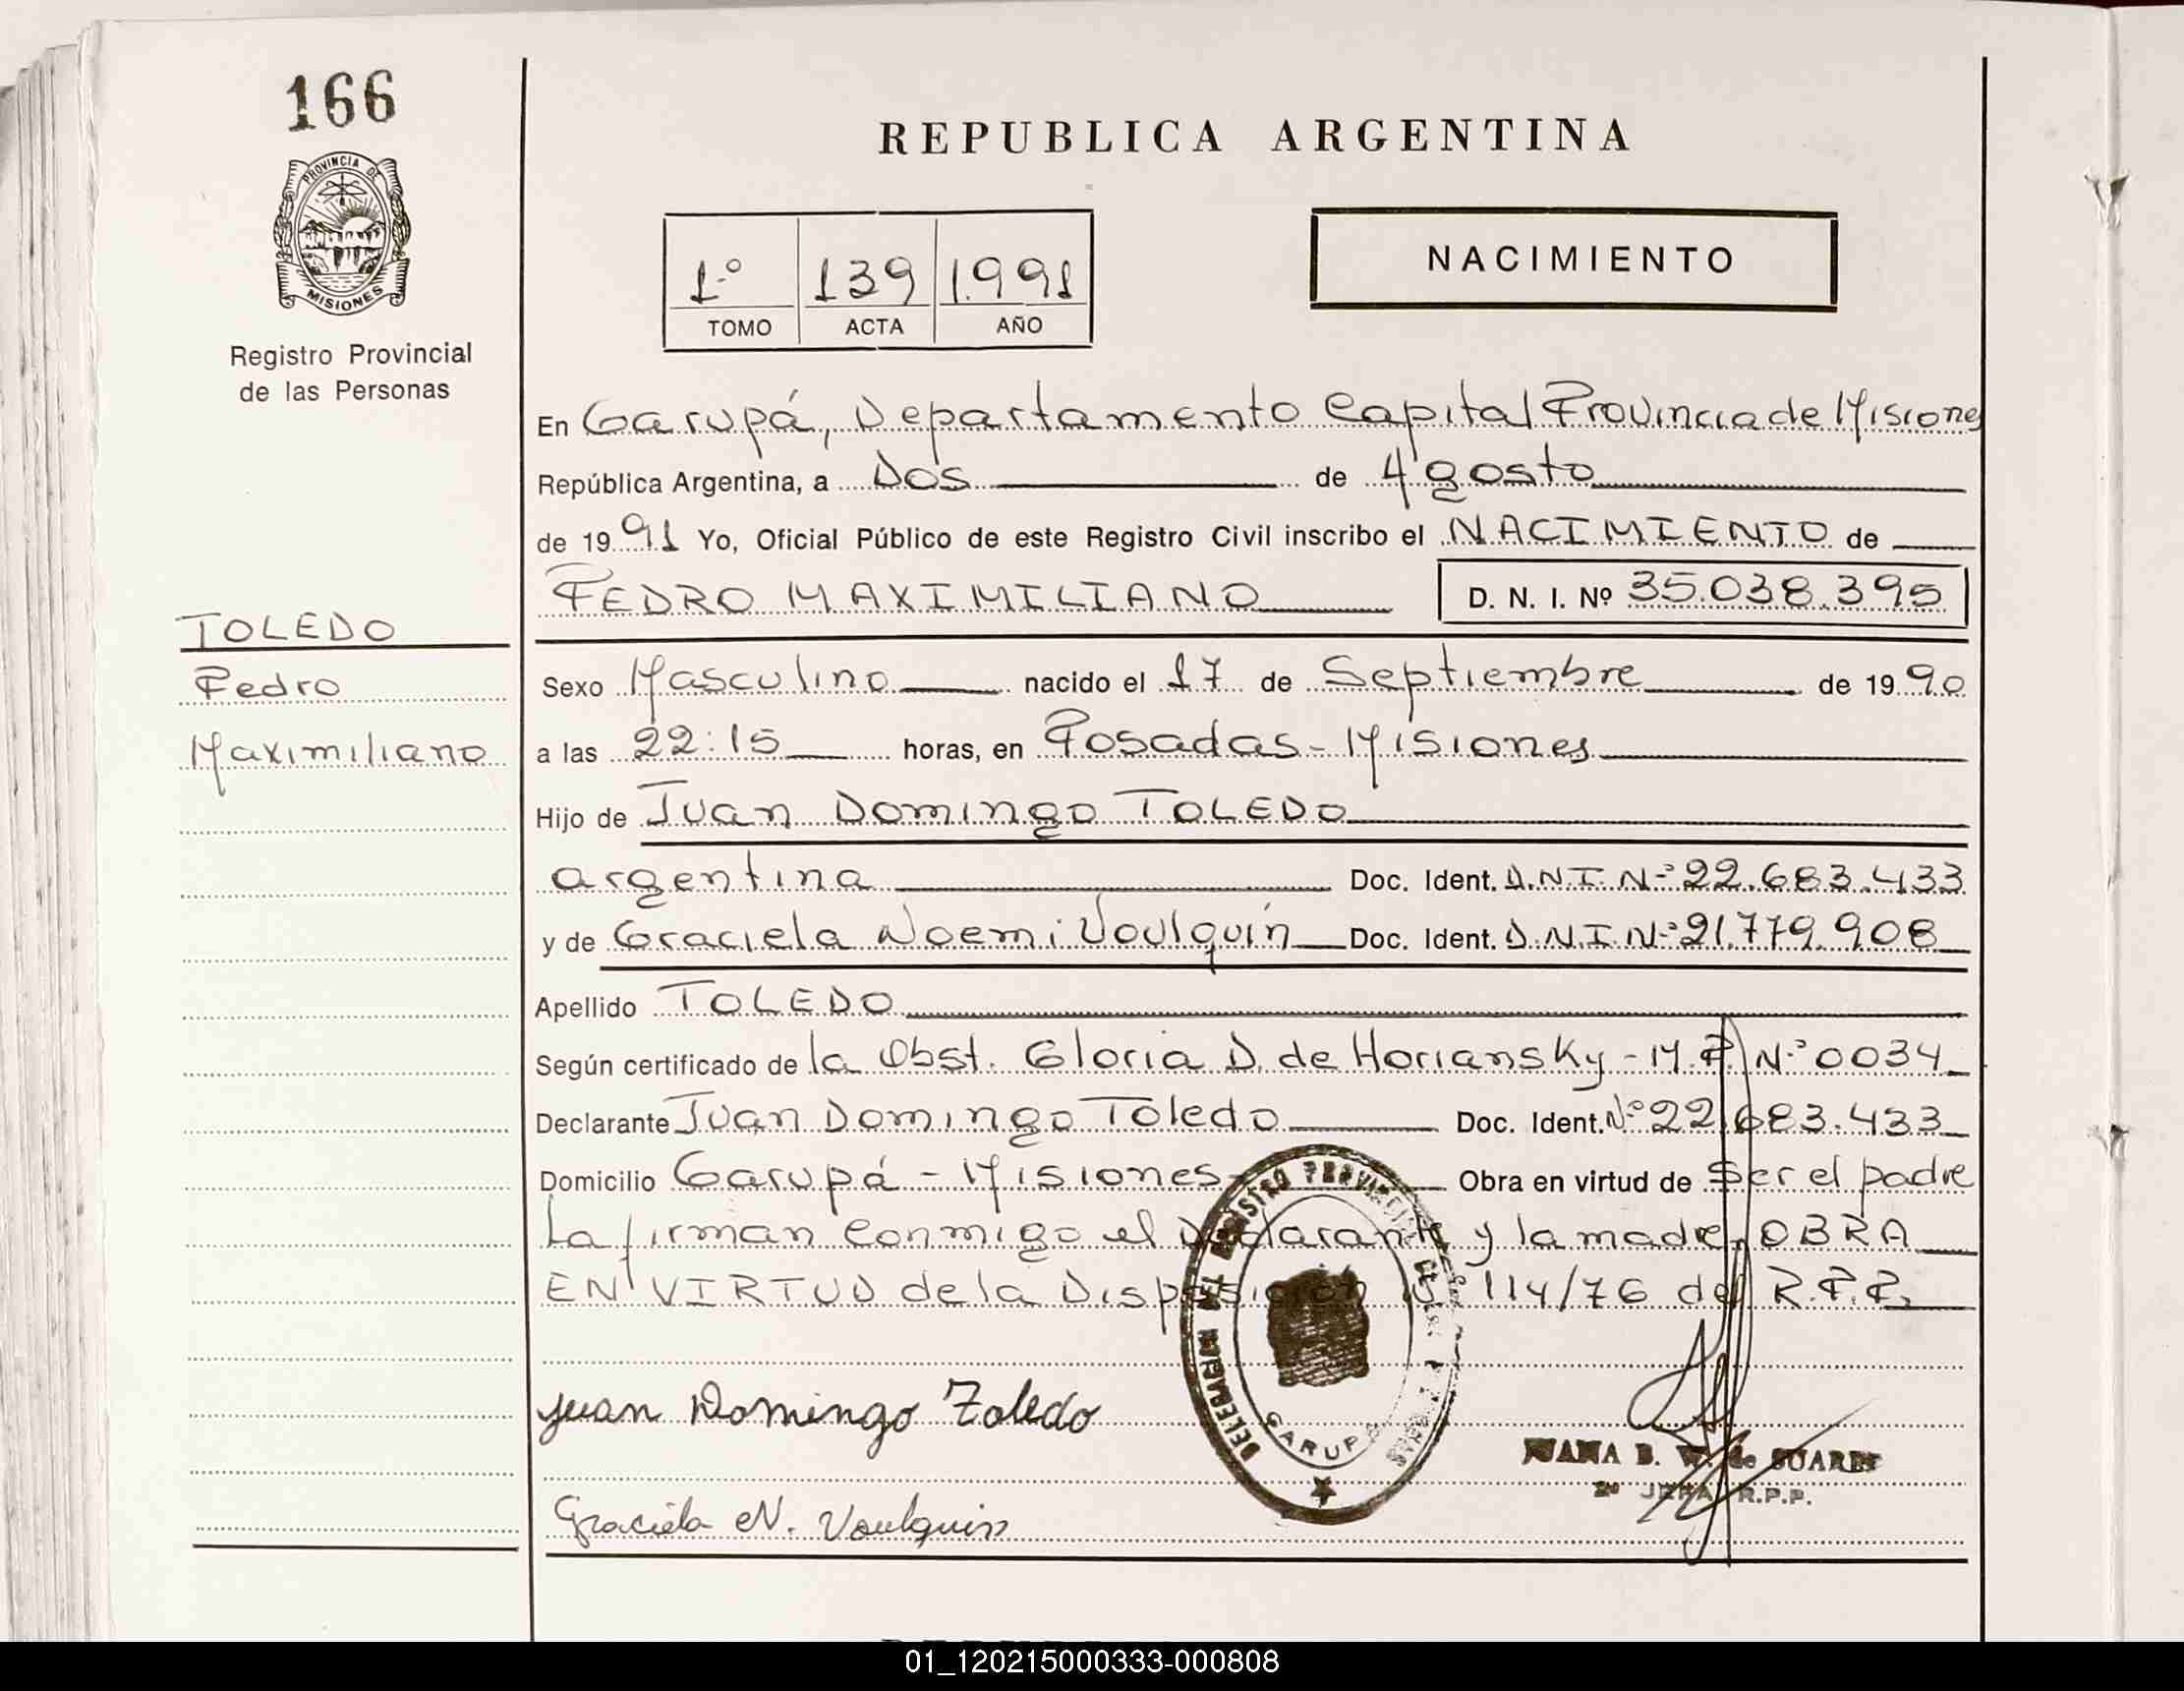 166
PROVINCIA DE
MISIONES
Registro Provincial
de las Personas
TOLEDO
Pedro
Maximiliano
REPUBLICA ARGENTINA
1º 139 1.991
TOMO ACTA AÑO
NACIMIENTO
En Garupá, Departamento Capital Provincia de Misiones
República Argentina, a Dos de Agosto
de 1991 Yo, Oficial Público de este Registro Civil inscribo el NACIMIENTO de
PEDRO MAXIMILIANO D. N. I. Nº 35.038.395
Sexo Masculino nacido el 17 de Septiembre de 1990
a las 22:15 horas, en Posadas - Misiones
Hijo de Juan Domingo TOLEDO
argentina Doc. Ident. D.N.I. Nº 22.683.433
y de Graciela Noemi Voulquín Doc. Ident. D.N.I. Nº 21.779.908
Apellido TOLEDO
Según certificado de la Obst. Gloria D. de Horiansky - M.P. Nº 0034
Declarante Juan Domingo Toledo Doc. Ident. Nº 22.683.433
Domicilio Garupá - Misiones Obra en virtud de Ser el padre
La firman conmigo el declarante y la madre, OBRA
EN VIRTUD de la Disposición Nº 114/76 del R.P.P.
Juan Domingo Toledo
GARUPA
JUANA B. de SUAREZ
JEFA R.P.P.
Graciela N. Voulquin
01_120215000333-000808